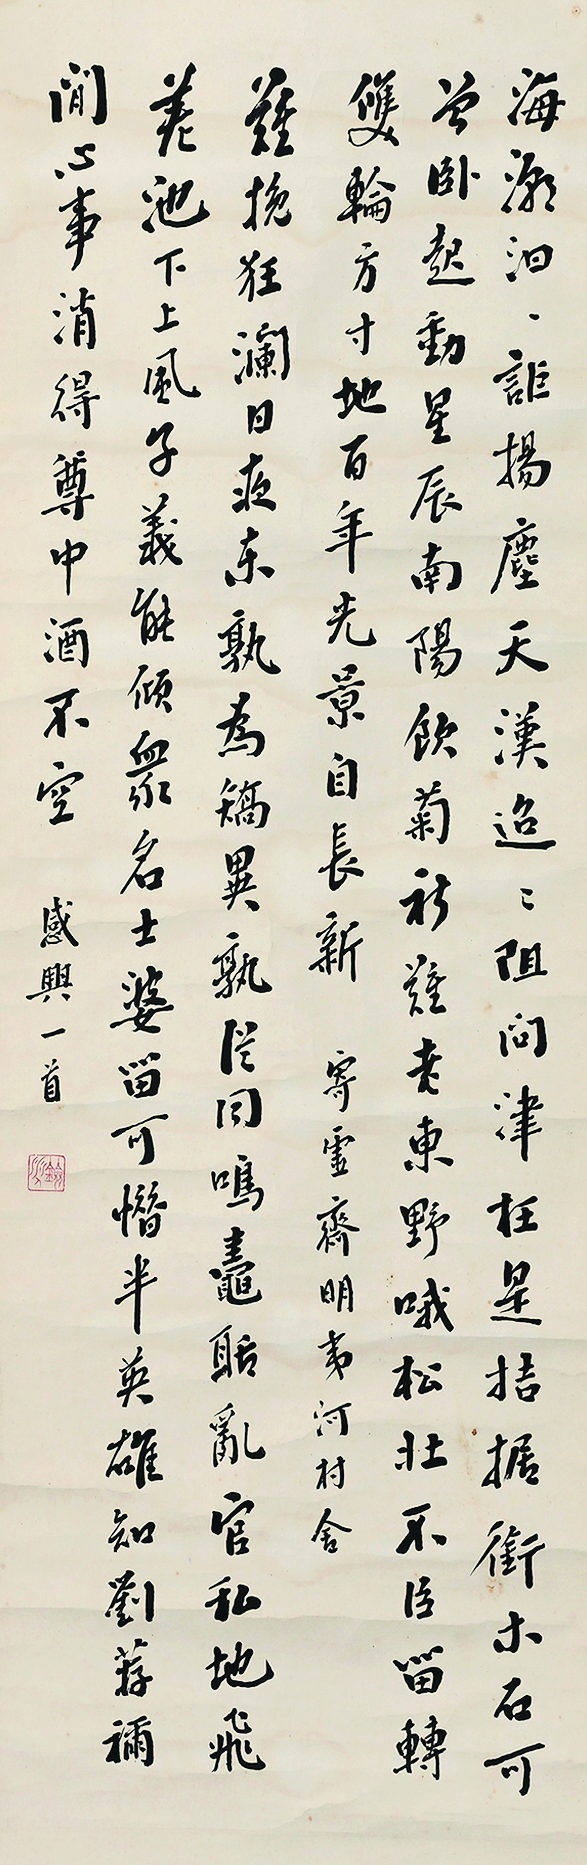 海潮汩〻詎揚塵天漢迢〻阻問津枉是拮据銜木石可
曾臥起動星辰南陽飲菊祈難老東野哦松壯不臣留轉
雙輪方寸地百年光景自長新 寄靈齋明夷河村舍
難挽狂瀾日夜東孰為矯異孰從同鳴鼃聒亂官私地飛
差池下上風子義能傾眾名士婆留可憯半英雄知劉蔣禰
閒心事消得尊中酒不空 感興一首